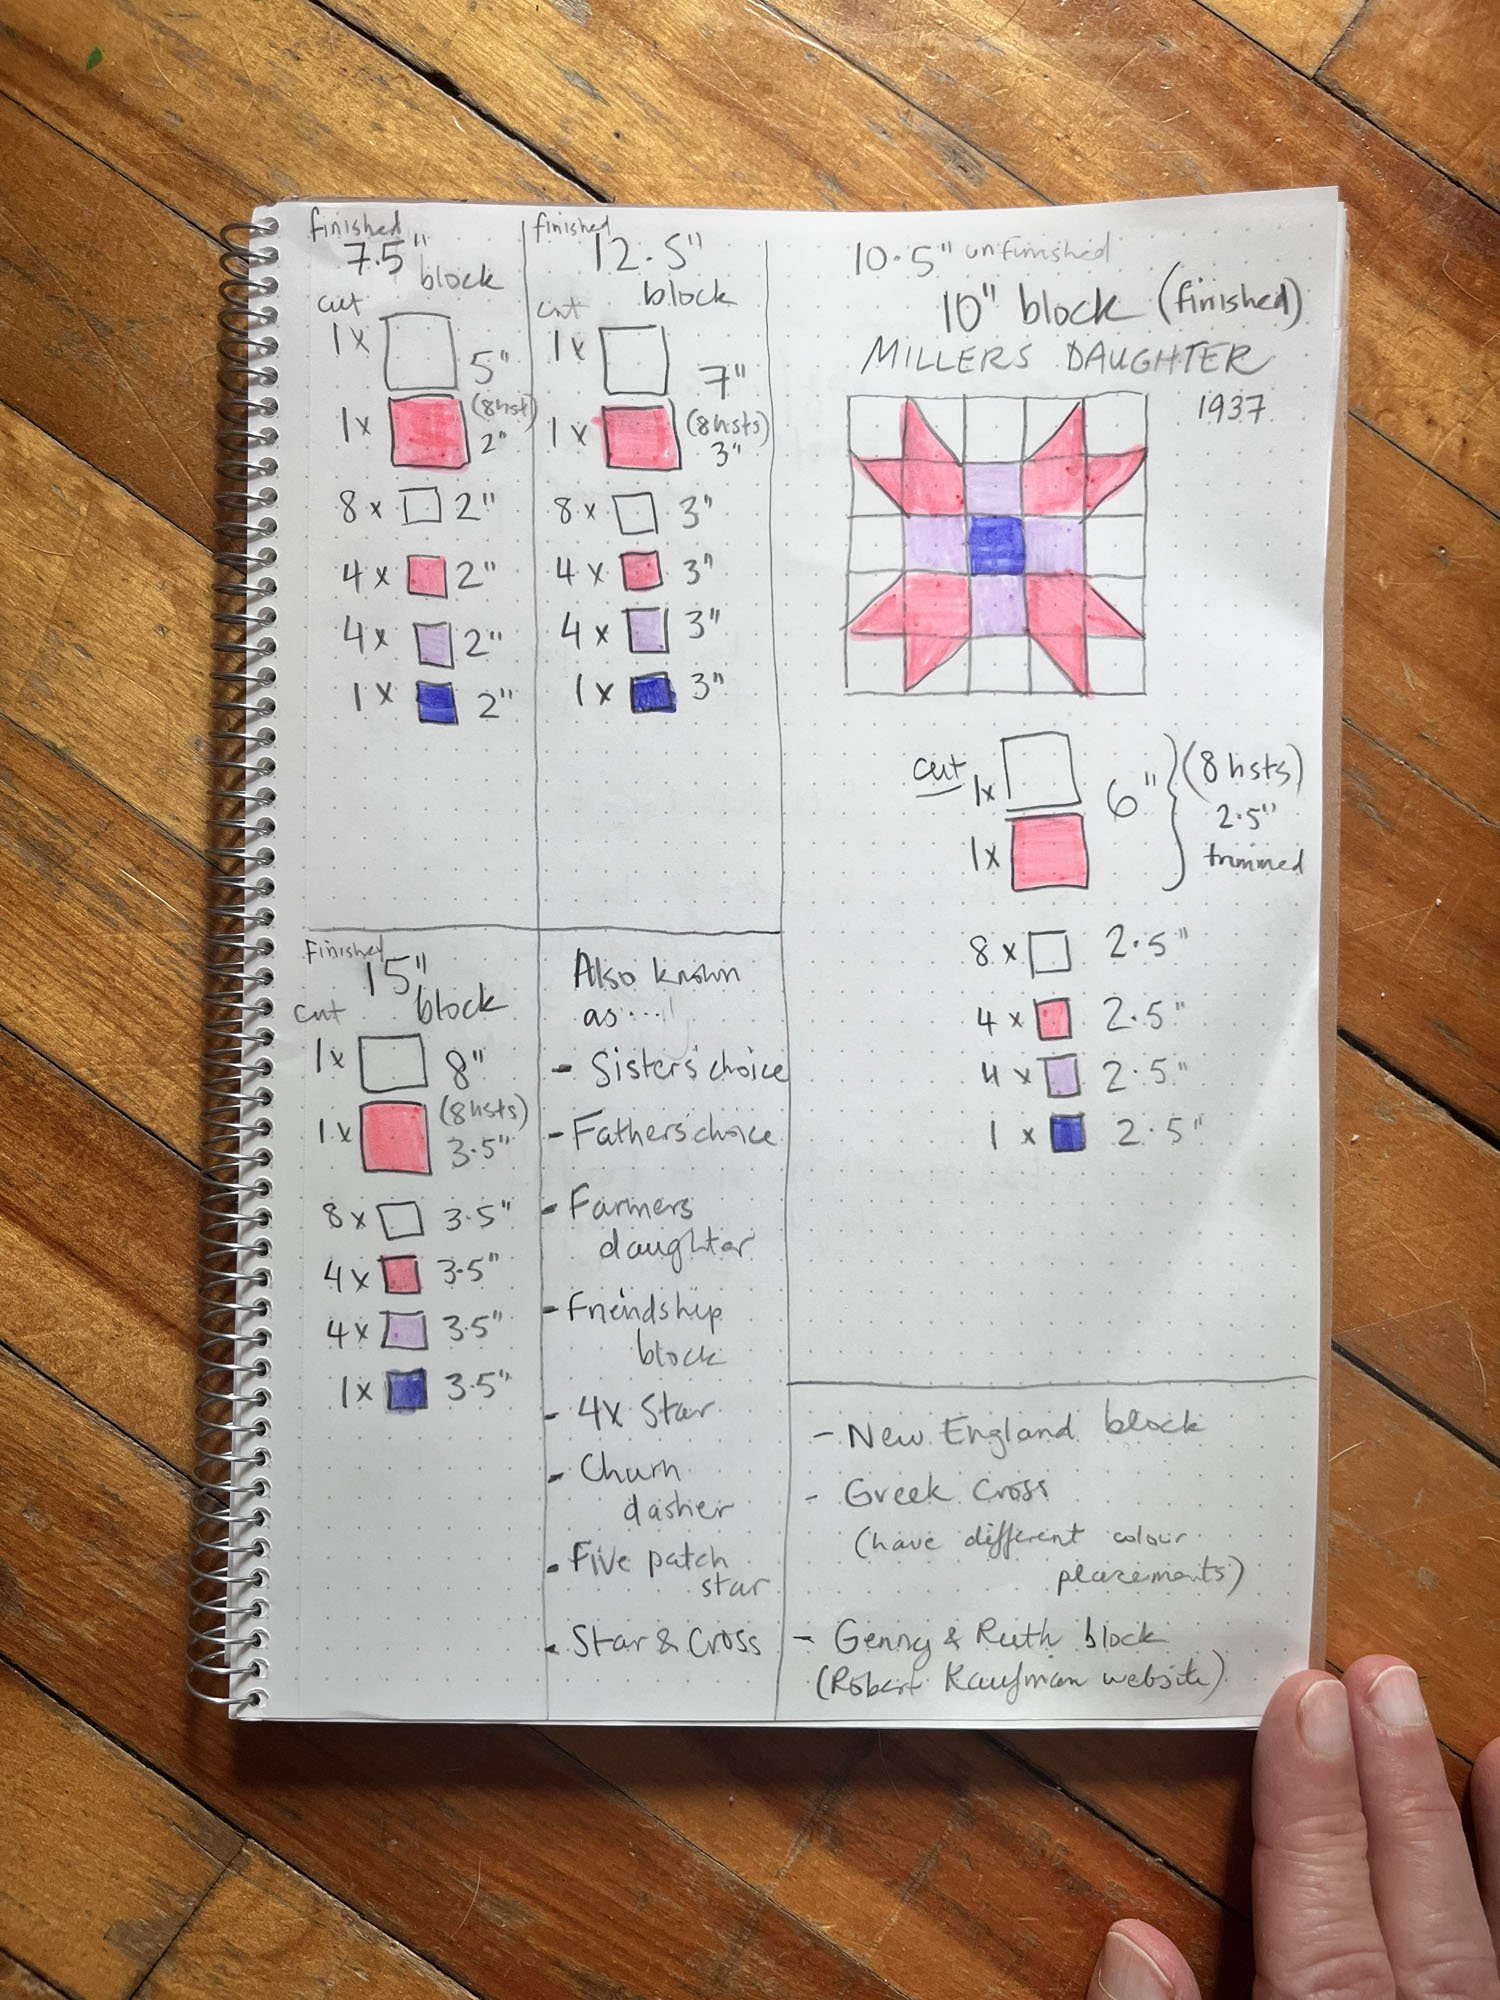 finished
7.5"
block
cut
1x 5"
1x (8hst)
2"
8x 2"
4x 2"
4x 2"
1x 2"
finished
12.5"
block
cut
1x 7"
1x (8hsts)
3"
8x 3"
4x 3"
4x 3"
1x 3"
10.5" unfinished
10" block (finished)
MILLERS DAUGHTER
1937
cut 1x 6" (8 hsts)
1x 2.5"
trimmed
8x 2.5"
4x 2.5"
4x 2.5"
1x 2.5"
Finished
15"
block
cut
1x 8"
1x (8hsts)
3.5"
8x 3.5"
4x 3.5"
4x 3.5"
1x 3.5"
Also known
as...
- Sister's choice
- Father's choice
- Farmers
daughter
- Friendship
block
- 4x Star
- Churn
dasher
- Five patch
star
- Star & Cross
- New England block
- Greek Cross
(have different colour
placements)
- Genny & Ruth block
(Robert Kaufman website)